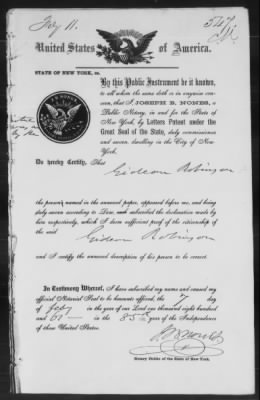 Feby 11.
547
United States of America.
STATE OF NEW YORK, ss.
By this Public Instrument be it known,
to all whom the same doth or in anywise con-
cern, that I JOSEPH B. NONES, a
Public Notary, in and for the State of
New York, by Letters Patent under the
Great Seal of the State, duly commissioned
and sworn, dwelling in the City of New
York,
Do hereby Certify, That
Gideon Robinson
the person's named in the annexed paper, appeared before me, and being
duly sworn according to Law, and subscribed the declaration made by
him respectively, which I deem sufficient proof of the citizenship of
the said
Gideon Robinson
and I certify the annexed description of his person to be correct.
In Testimony Whereof, I have subscribed my name and caused my
official Notarial Seal to be hereunto affixed, the 7 day
of Feby in the year of our Lord one thousand eight hundred
and 61 in the 85th year of the Independence
of these United States.
J B Nones
Notary Public of the State of New York.